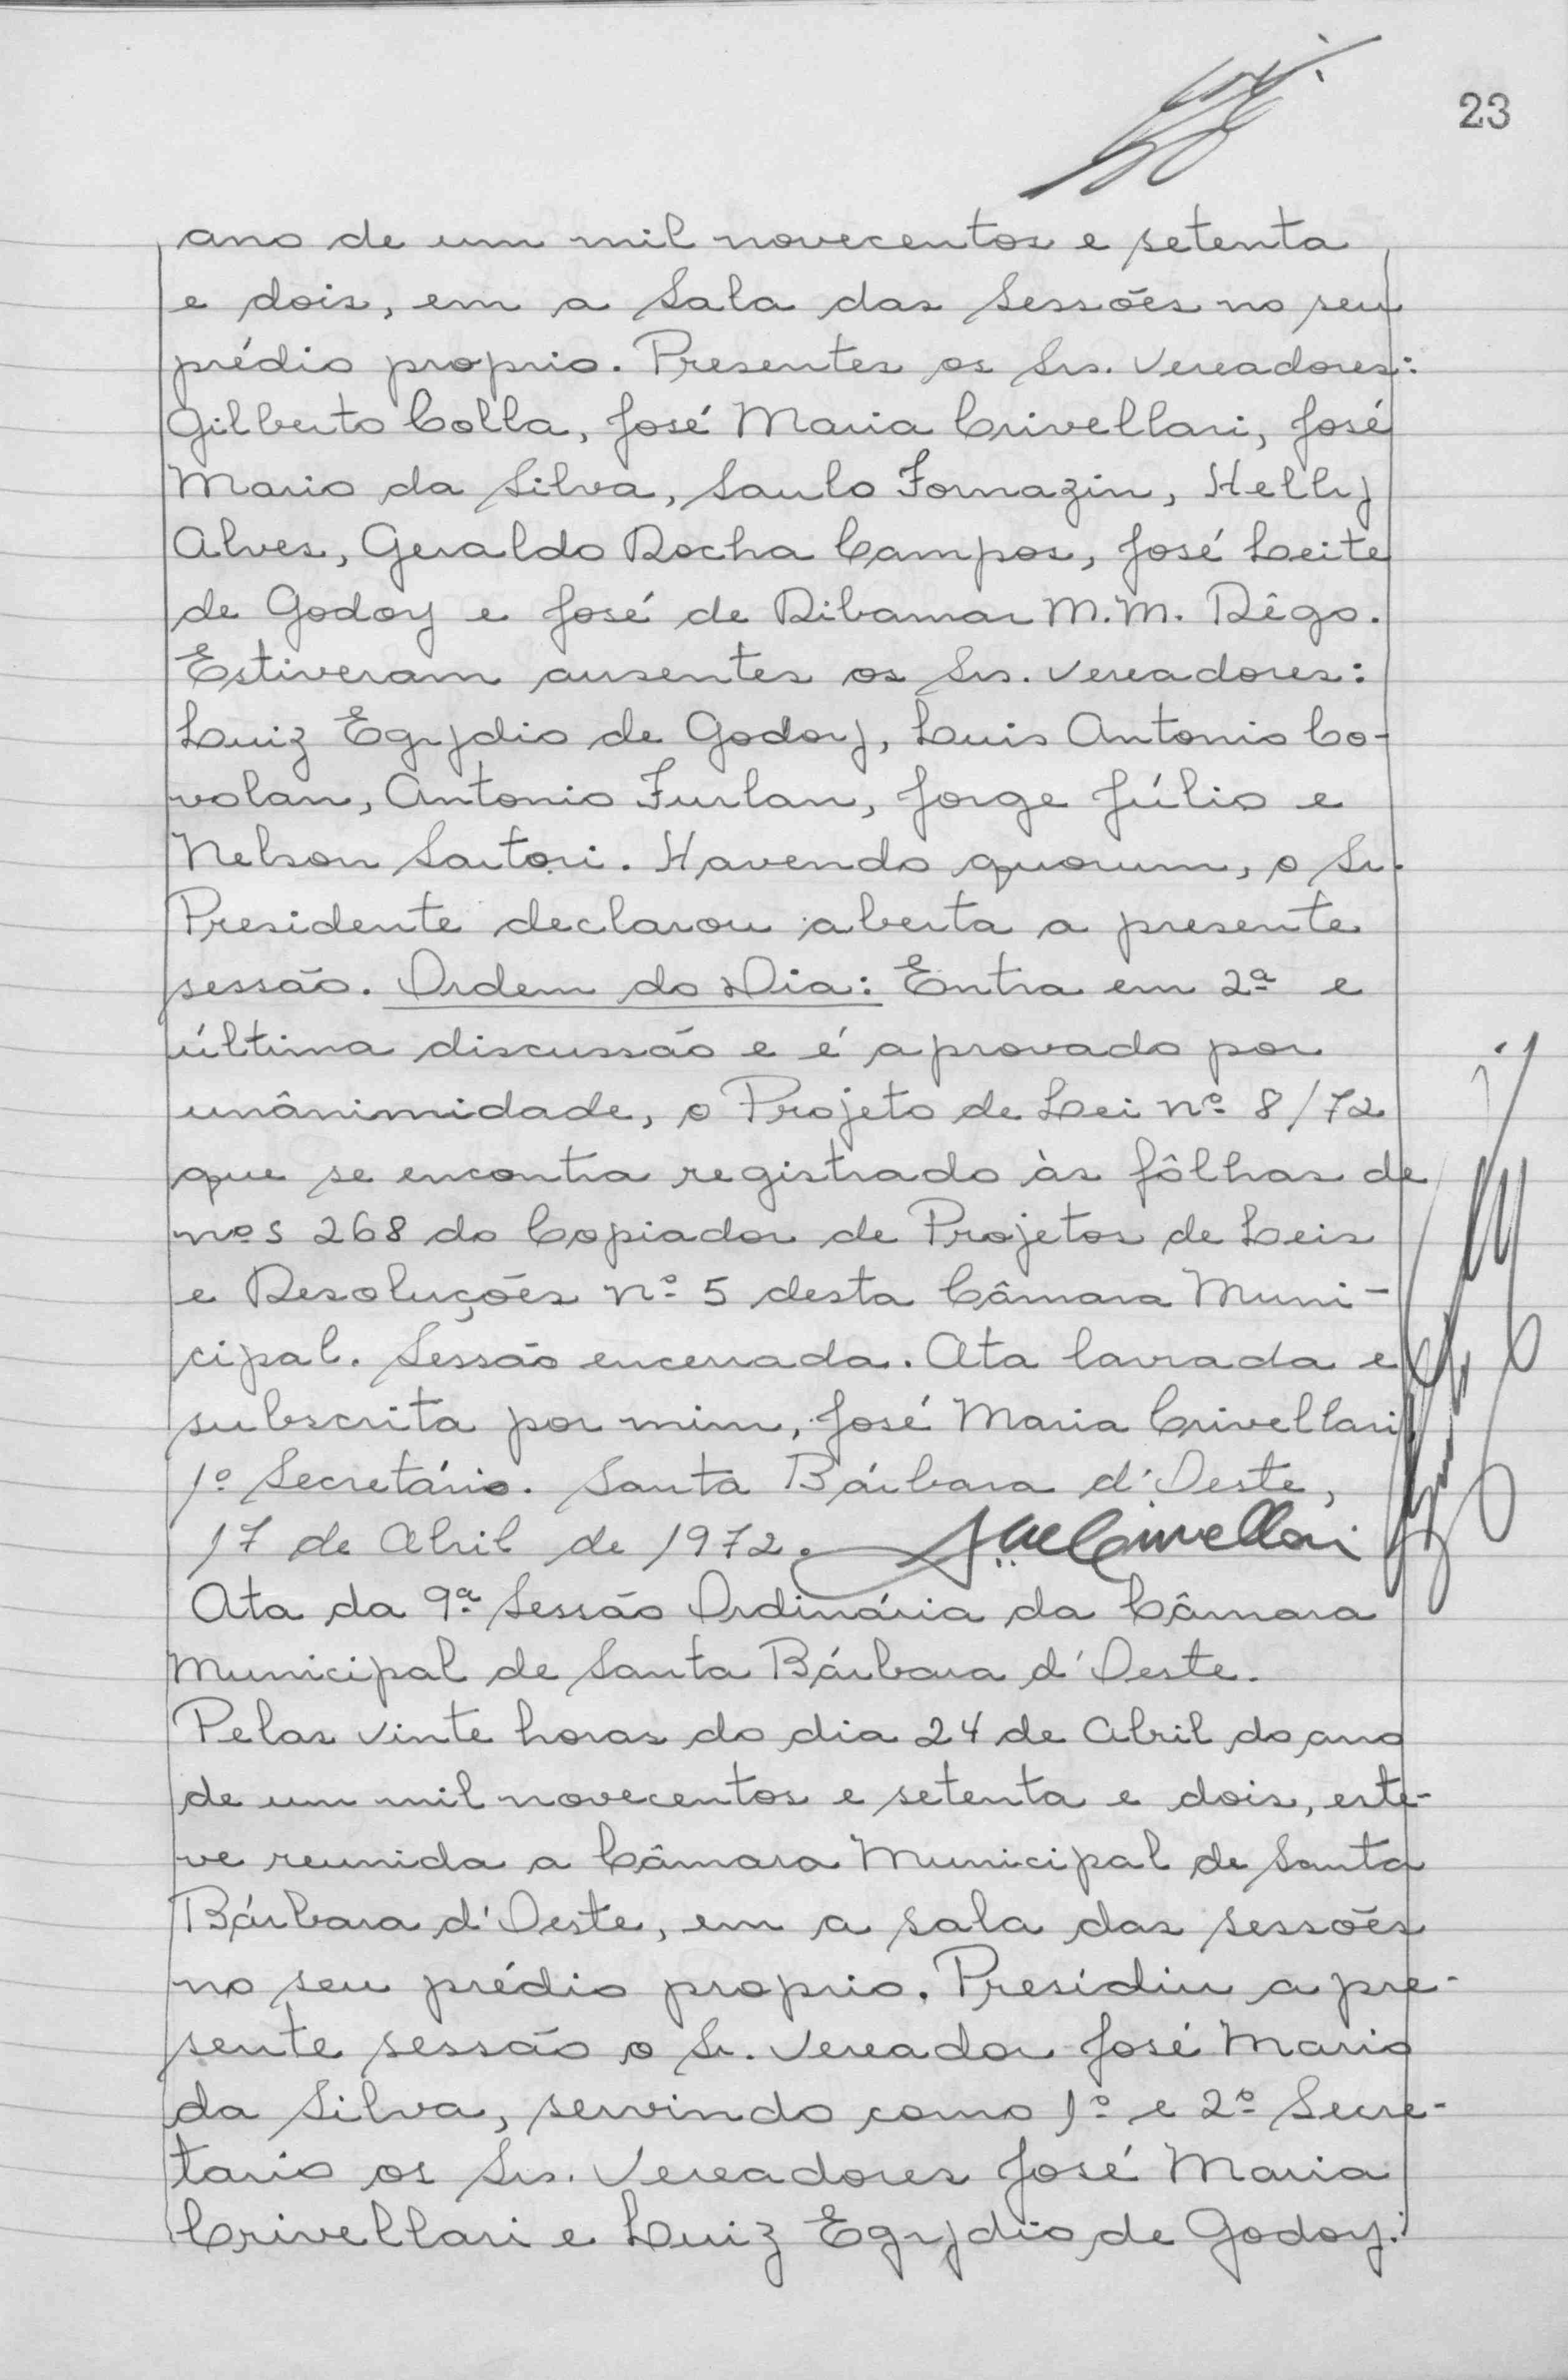 23
ano de um mil novecentos e setenta
e dois, em a Sala das Sessões no seu
prédio proprio. Presentes os Srs. Vereadores:
Gilberto Colla, José Maria Crivellari, José
Mario da Silva, Saulo Fornazin, Helly
Alves, Geraldo Rocha Campos, José Leite
de Godoy e José de Ribamar M. M. Rêgo.
Estiveram ausentes os Srs. Vereadores:
Luiz Egydio de Godoy, Luis Antonio Co-
volan, Antonio Furlan, Jorge Júlio e
Nelson Sartori. Havendo quorum, o Sr.
Presidente declarou aberta a presente
sessão. Ordem do Dia: Entra em 2ª e
última discussão e é aprovado por
unânimidade, o Projeto de Lei nº 8/72
que se encontra registrado às fôlhas de
nºs 268 do Copiador de Projetos de Leis
e Resoluções nº 5 desta Câmara Muni-
cipal. Sessão encerrada. Ata lavrada e
subscrita por mim, José Maria Crivellari
1º Secretário. Santa Bárbara d'Oeste,
17 de Abril de 1972. JMCrivellari
Ata da 9ª Sessão Ordinária da Câmara
Municipal de Santa Bárbara d'Oeste.
Pelas vinte horas do dia 24 de Abril do ano
de um mil novecentos e setenta e dois, este-
ve reunida a Câmara Municipal de Santa
Bárbara d'Oeste, em a sala das sessões
no seu prédio proprio. Presidiu a pre-
sente sessão o Sr. Vereador José Mario
da Silva, servindo como 1º e 2º Secre-
tario os Srs. Vereadores José Maria
Crivellari e Luiz Egydio de Godoy.